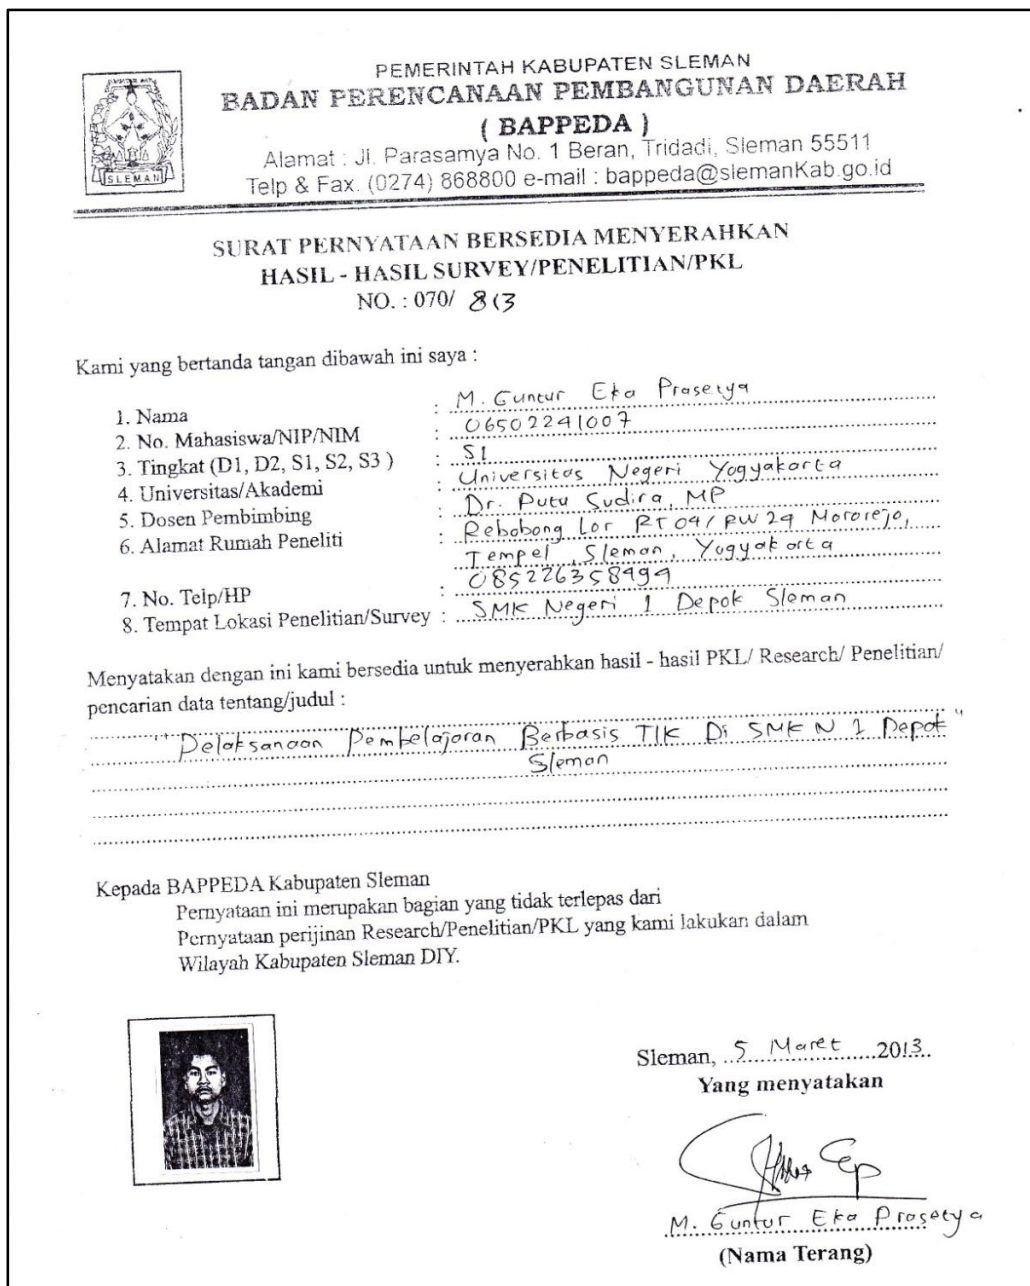 SLEMAN
PEMERINTAH KABUPATEN SLEMAN
BADAN PERENCANAAN PEMBANGUNAN DAERAH
( BAPPEDA )
Alamat : Jl. Parasamya No. 1 Beran, Tridadi, Sleman 55511
Telp & Fax. (0274) 868800 e-mail : bappeda@slemanKab.go.id
SURAT PERNYATAAN BERSEDIA MENYERAHKAN
HASIL - HASIL SURVEY/PENELITIAN/PKL
NO. : 070/ 813
Kami yang bertanda tangan dibawah ini saya :
1. Nama : M. Guntur Eka Prasetya
2. No. Mahasiswa/NIP/NIM : 06502241007
3. Tingkat (D1, D2, S1, S2, S3 ) : S1
4. Universitas/Akademi : Universitas Negeri Yogyakarta
5. Dosen Pembimbing : Dr. Putu Sudira, MP
6. Alamat Rumah Peneliti : Rebobong Lor RT 04/ RW 24 Mororejo,
Tempel, Sleman, Yogyakarta
7. No. Telp/HP : 085226358494
8. Tempat Lokasi Penelitian/Survey : SMK Negeri 1 Depok Sleman
Menyatakan dengan ini kami bersedia untuk menyerahkan hasil - hasil PKL/ Research/ Penelitian/
pencarian data tentang/judul :
"Pelaksanaan Pembelajaran Berbasis TIK Di SMK N 1 Depok"
Sleman
Kepada BAPPEDA Kabupaten Sleman
Pernyataan ini merupakan bagian yang tidak terlepas dari
Pernyataan perijinan Research/Penelitian/PKL yang kami lakukan dalam
Wilayah Kabupaten Sleman DIY.
Sleman, 5 Maret 2013
Yang menyatakan
M. Guntur Eka Prasetya
(Nama Terang)